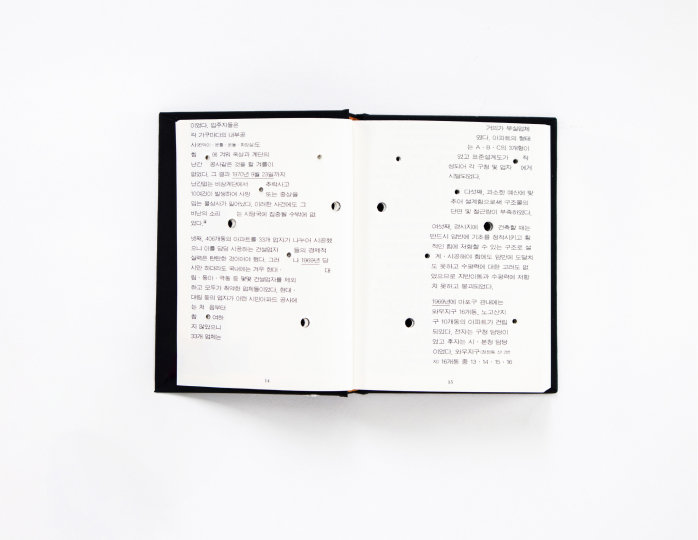 이었다. 입주자들은
각 가구마다의 내부공
사(칸막이·온돌·창틀·화장실)도
힘 에 겨워 옥상과 계단의
난간 공사같은 것을 할 겨를이
없었다. 그 결과 1970년 9월 23일까지
난간없는 비상계단에서 추락사고
10여건이 발생하여 사망 또는 중상을
입는 불상사가 일어났다. 이러한 사건에도 그
비난의 소리 는 시당국에 집중될 수밖에 없
었다.
넷째, 406개동의 아파트를 33개 업자가 나누어 시공했
으니 이를 담당 시공하는 건설업자 들의 경제적
실력은 빈약한 것이어야 했다. 그러 나 1969년 당
시만 하더라도 국내에는 겨우 현대· 대
림·동아·극동 등 몇몇 건설업자를 제외
하고 모두가 취약한 업체들이었다. 현대·
대림 등의 업자가 이런 시민아파트 공사에
는 처 음부터
힘 여하
지 않았으니
33개 업체는
14
거의가 부실업체
였다. 아파트의 형태
는 A·B·C의 3개형이
었고 표준설계도가 작
성되어 각 구청 및 업자 에게
시달되었다.
다섯째, 과소한 예산에 맞
추어 설계함으로써 구조물의
단면 및 철근량이 부족하였다.
여섯째, 경사지에 건축할 때는
반드시 암반에 기초를 정착시키고 횡
적인 힘에 저항할 수 있는 구조로 설
계·시공해야 함에도 암반에 도달치
도 못하고 수평력에 대한 고려도 없
었으므로 지반이동과 수평력에 저항
치 못하고 붕괴되었다.
1969년에 마포구 관내에는
와우지구 16개동, 노고산지
구 10개동의 아파트가 건립
되었다. 전자는 구청 담당이
었고 후자는 시·본청 담당
이었다. 와우지구(창전동 산 2번
지) 16개동 중 13·14·15·16
15